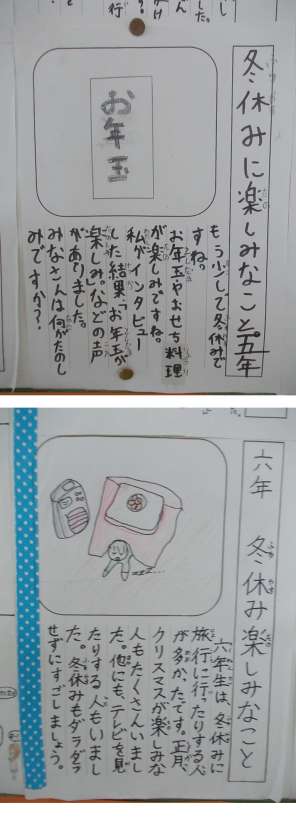 冬休みに楽しみなこと。五年
お年玉
もう少しで冬休みで
すね。
お年玉やおせち料理
が楽しみですね。
私がインタビュー
した結果「お年玉が
楽しみ。」などの声
がありました。
みなさんは何がたのし
みですか?
六年 冬休み楽しみなこと
六年生は、冬休みに
旅行に行ったりする人
が多かたです。正月、
クリスマスが楽しみな
人もたくさんいまし
た。他にも、テレビを見
たりする人もいまし
た。冬休みもダラダラ
せずにすごしましょう。